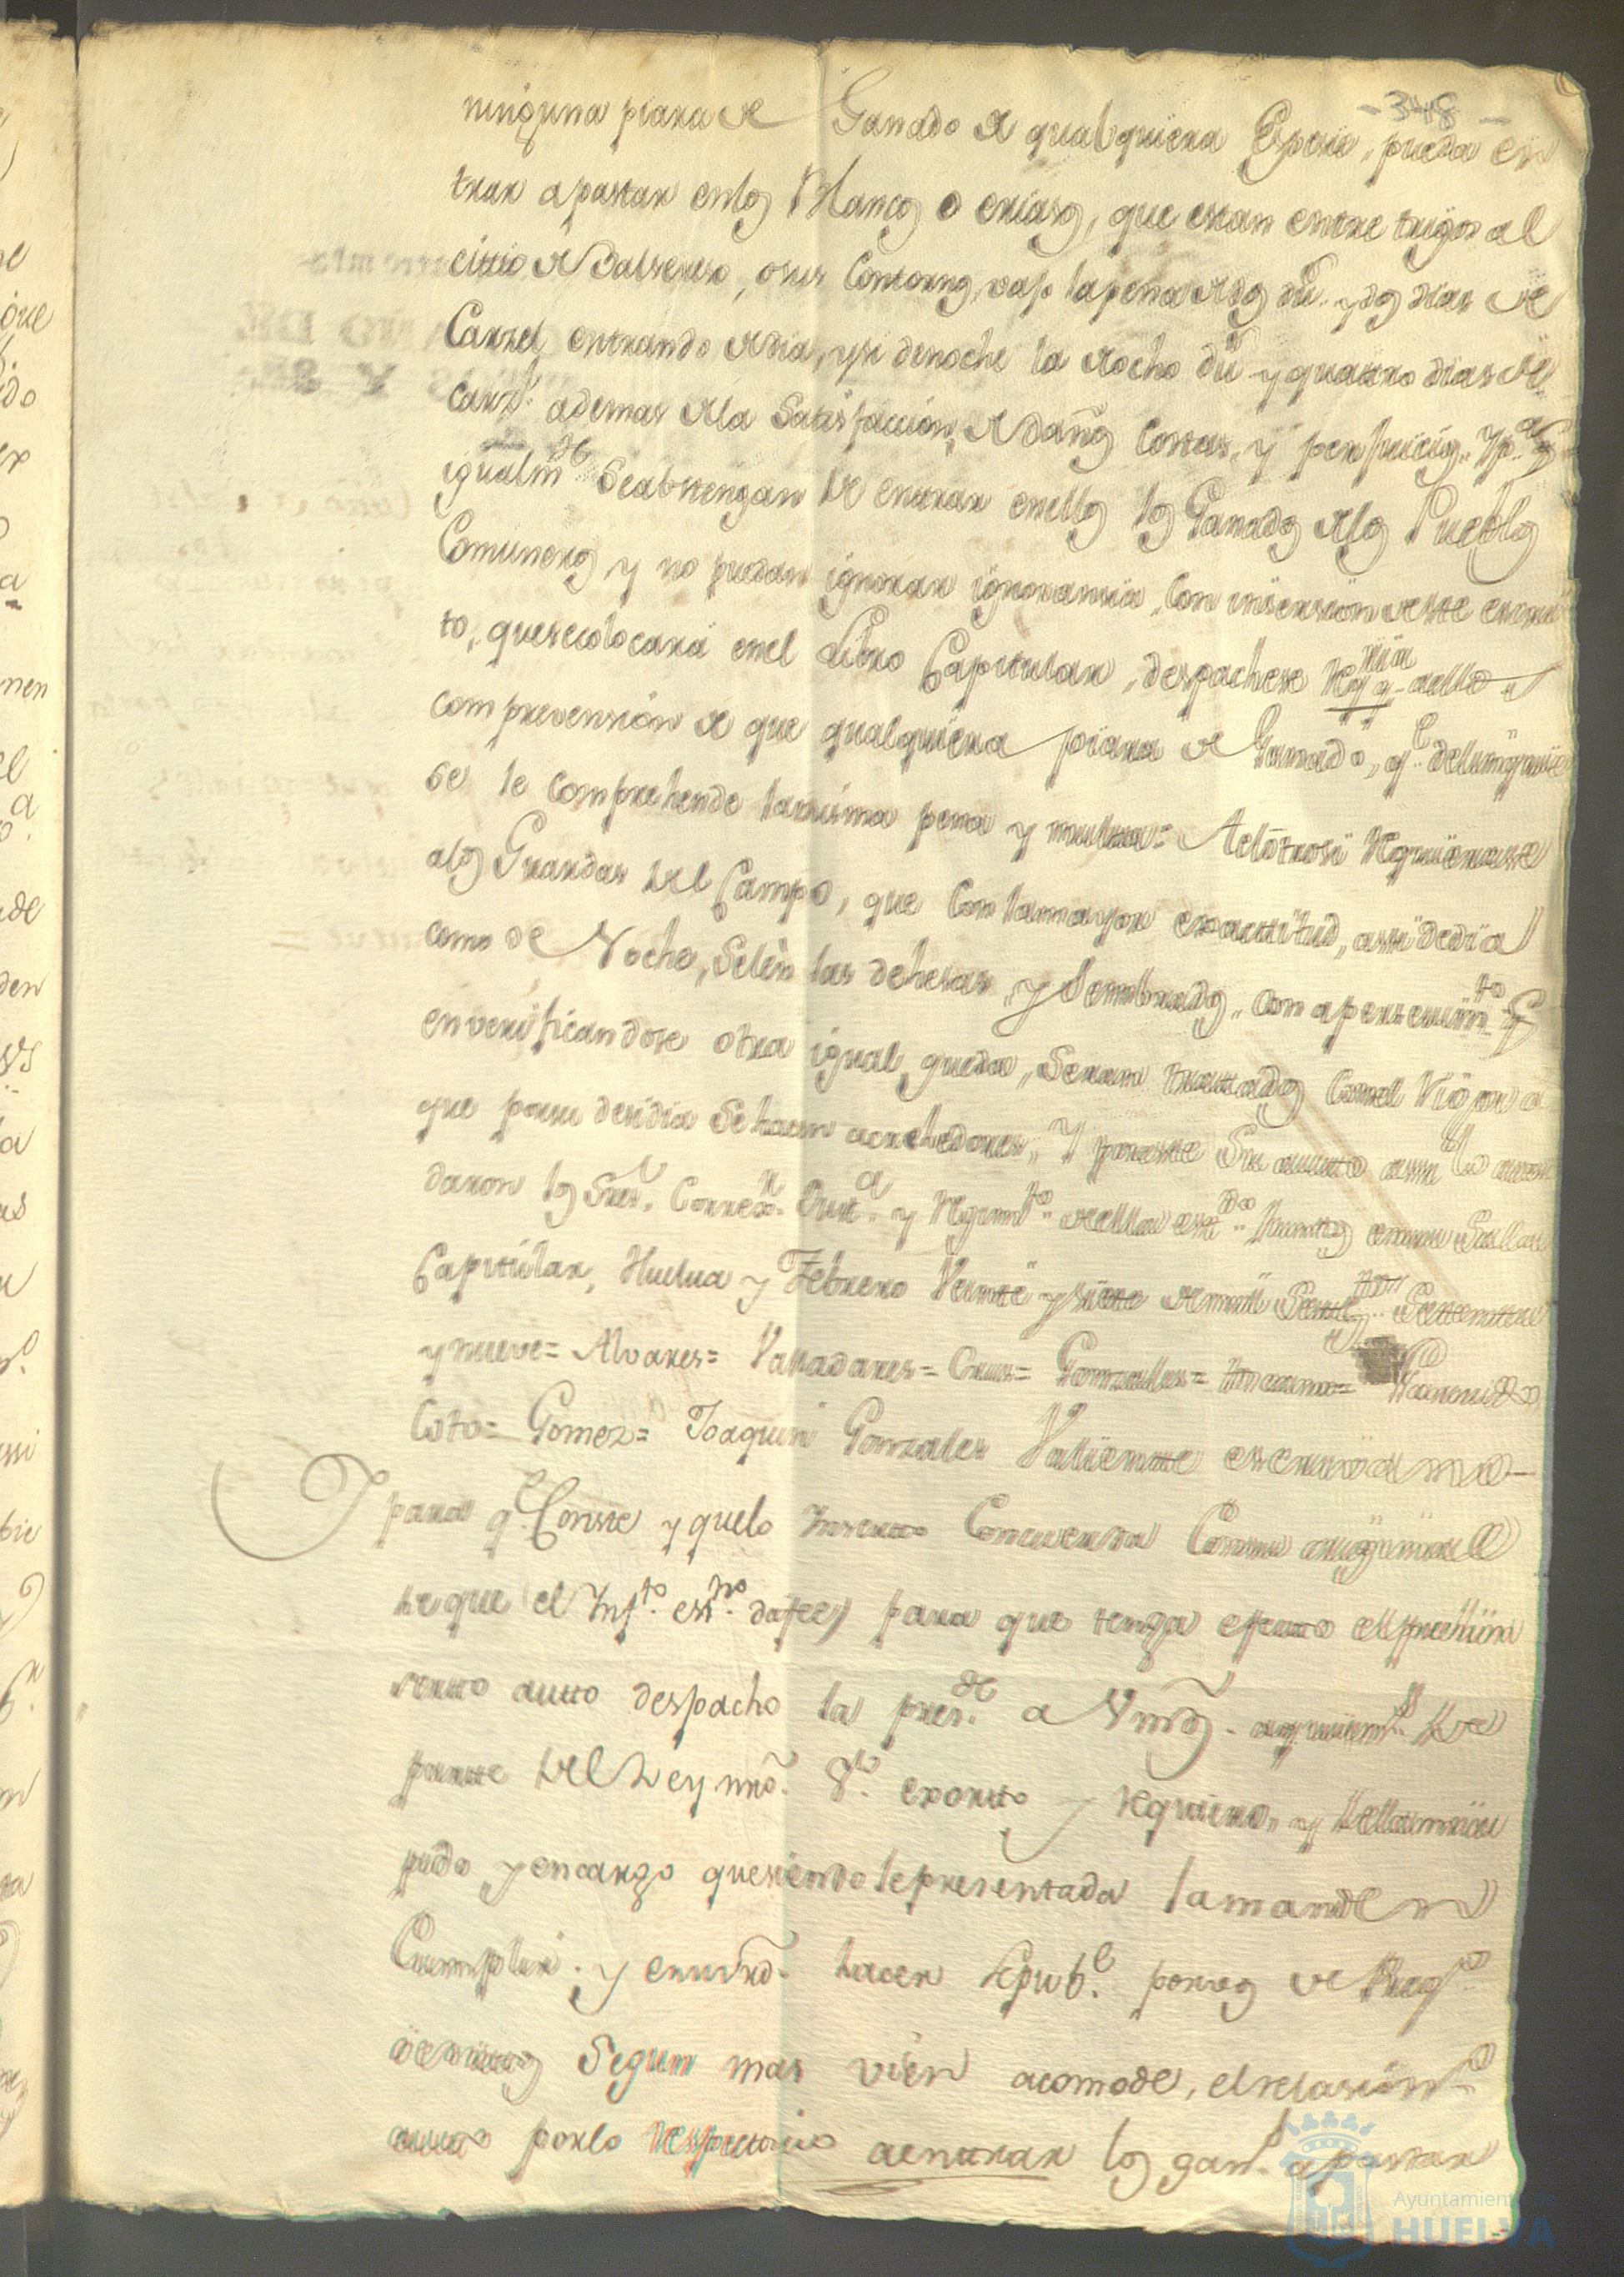 -348-
ninguna piara de Ganado de qualquiera Espesie, pueda en
trar apastar enlos Mancos o eriasos, que estan entre trigos al
cittio de Valsereso, osus Contornos, vajo lapena de dos du.s y dos dias de
Carzel entrando de dia, ysi denoche la de ocho du.s y quattro dias de
carz.l ademas de la Satisfaccion, de daños Costas, y perjuicios. Yp.a q.e
igualm.te Seabstengan de entrar enellos los Ganados de los Pueblos
Comuneros y no puedan ignorar ignoransia, Con insersion deeste escrip
to, quesecolocará enel Libro Capitular, despachese Req.ria aellos
comprevension de que qualquiera piara de Ganado, q.e delinquiè
se le Comprehende lamisma pena y multa= Aelotrosi Requierase
alos Guardas del Campo, que Con lamayor exacttitud, assi dedia
como de Noche, Selèn las dehesas, y Sembrados, Con apersevim.to q.e
enverificandose otra igual queda, Seran trattados Conel Vigor a
que porsu decidia Sehacen acrehedores, Y poreste Su autto assi lo acor
daron los Sres. Correx.r Just.a y Regim.to deella est.do Junttos ensu Salla
Capittular, Huelva y Febrero Veintte y siette demill Settez.tos Settentta
y nueve= Alvares= Valladares= Crus= Gonzalles=
Coto= Gomez= Joaquin Gonzales Valiente escrivano
Y para q.e Conste y quelo Insertto Concuerda Consu original
de que el Inf.to ess.no dafee) para que tenga efectto elpreein
sertto autto despacho la pres.te a Vmds. de
partte del Rey nrô. S.or exortto y requiero, y dellamia
pido yencargo quesiendolepresentada lamanden
Cumplir. y ensuvrd. hacer sepub.e porvos de Preg.o
Segun mas vien acomode, elrelasion.do
autto porlo respectivo aentrar los gan.s apastar
Ayuntamiento de
HUELVA